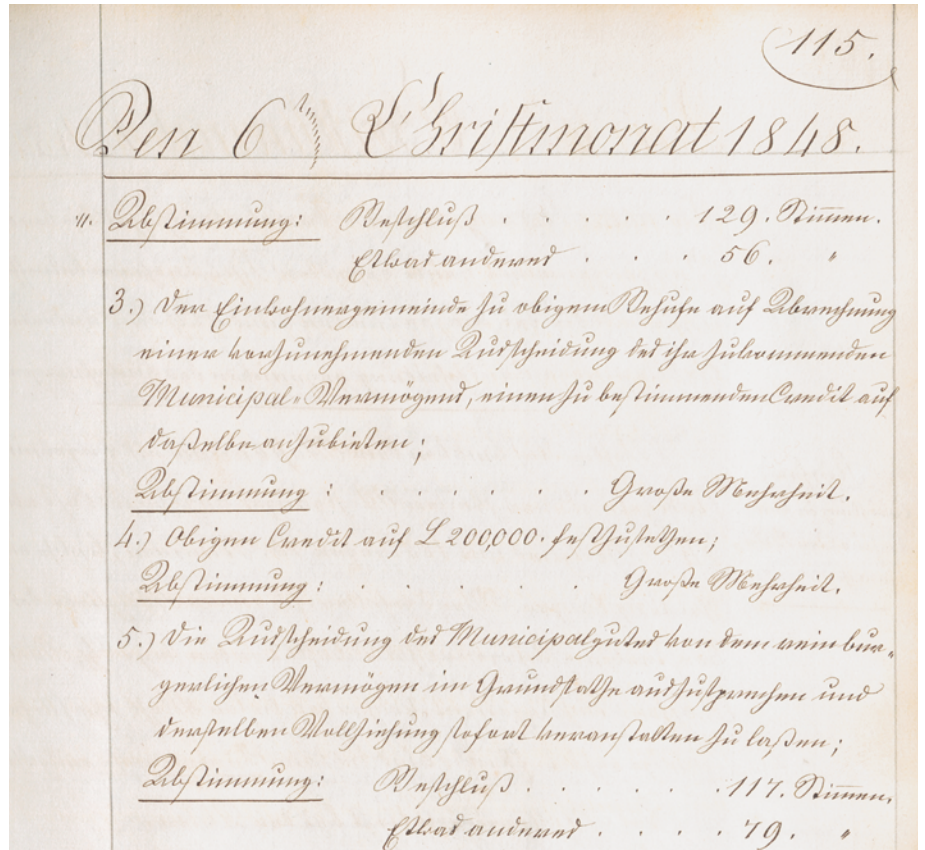 115.
Den 6ᵗ Christmonat 1848.
11. Abstimmung: Beschluß . . . . . 129. Stimmen.
Etwas anderes . . . 56. "
3.) Der Einwohnergemeinde zu obigem Behufe auf Abrechnung
einer vorzunehmenden Ausscheidung des ihr zukommenden
Municipal-Vermögens, einen zu bestimmenden Credit auf
daßelbe anzubieten;
Abstimmung : . . . . . Große Mehrheit.
4.) Obigen Credit auf L 200,000. festzusetzen;
Abstimmung : . . . . Große Mehrheit.
5.) Die Ausscheidung des Municipalgutes von dem rein bur-
gerlichen Vermögen im Grundsatze auszusprechen und
derselben Vollziehung sofort veranstalten zu laßen;
Abstimmung: Beschluß . . . . . 117. Stimmen.
Etwas anderes . . . . 79. "